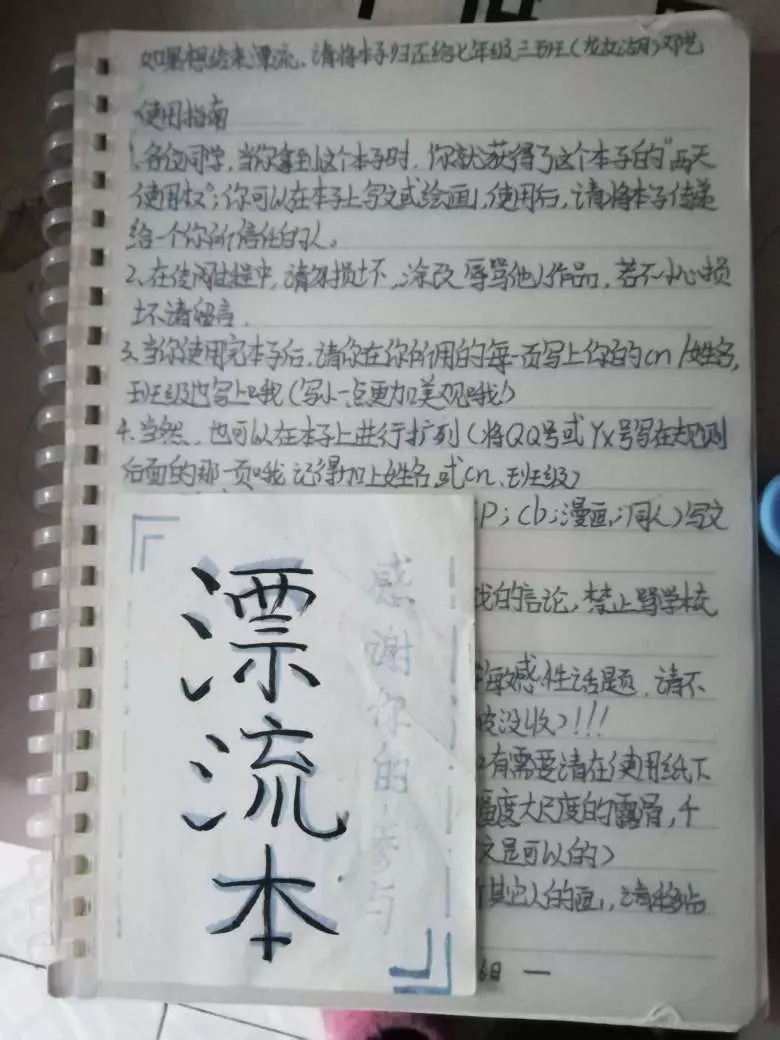 如果想结束漂流,请将本子归还给七年级三班(龙女湖)邓艺
使用指南
1.各位同学,当你拿到这个本子时,你就获得了这个本子的“两天
使用权”;你可以在本子上写文或绘画,使用后,请将本子传递
给一个你所信任的人。
2、在传阅过程中,请勿损坏,涂改,辱骂他人作品,若不小心损
坏请留言.
3.当你使用完本子后,请你在你所用的每一页写上你的cn/姓名,
班级也写上哦(写小一点更加美观哦!)
4.当然,也可以在本子上进行扩列(将QQ号或Yx号写在规则
后面的那一页哦 记得加上姓名或cn、班级)
P;cb;漫画;同人)写文
的言论,禁止骂学校
敏感性话题,请不
没收)!!!
有需要请在使用纸下
度大尺度的露骨,
文是可以的)
其它人的画,请
6日 —
漂流本
感谢你的参与